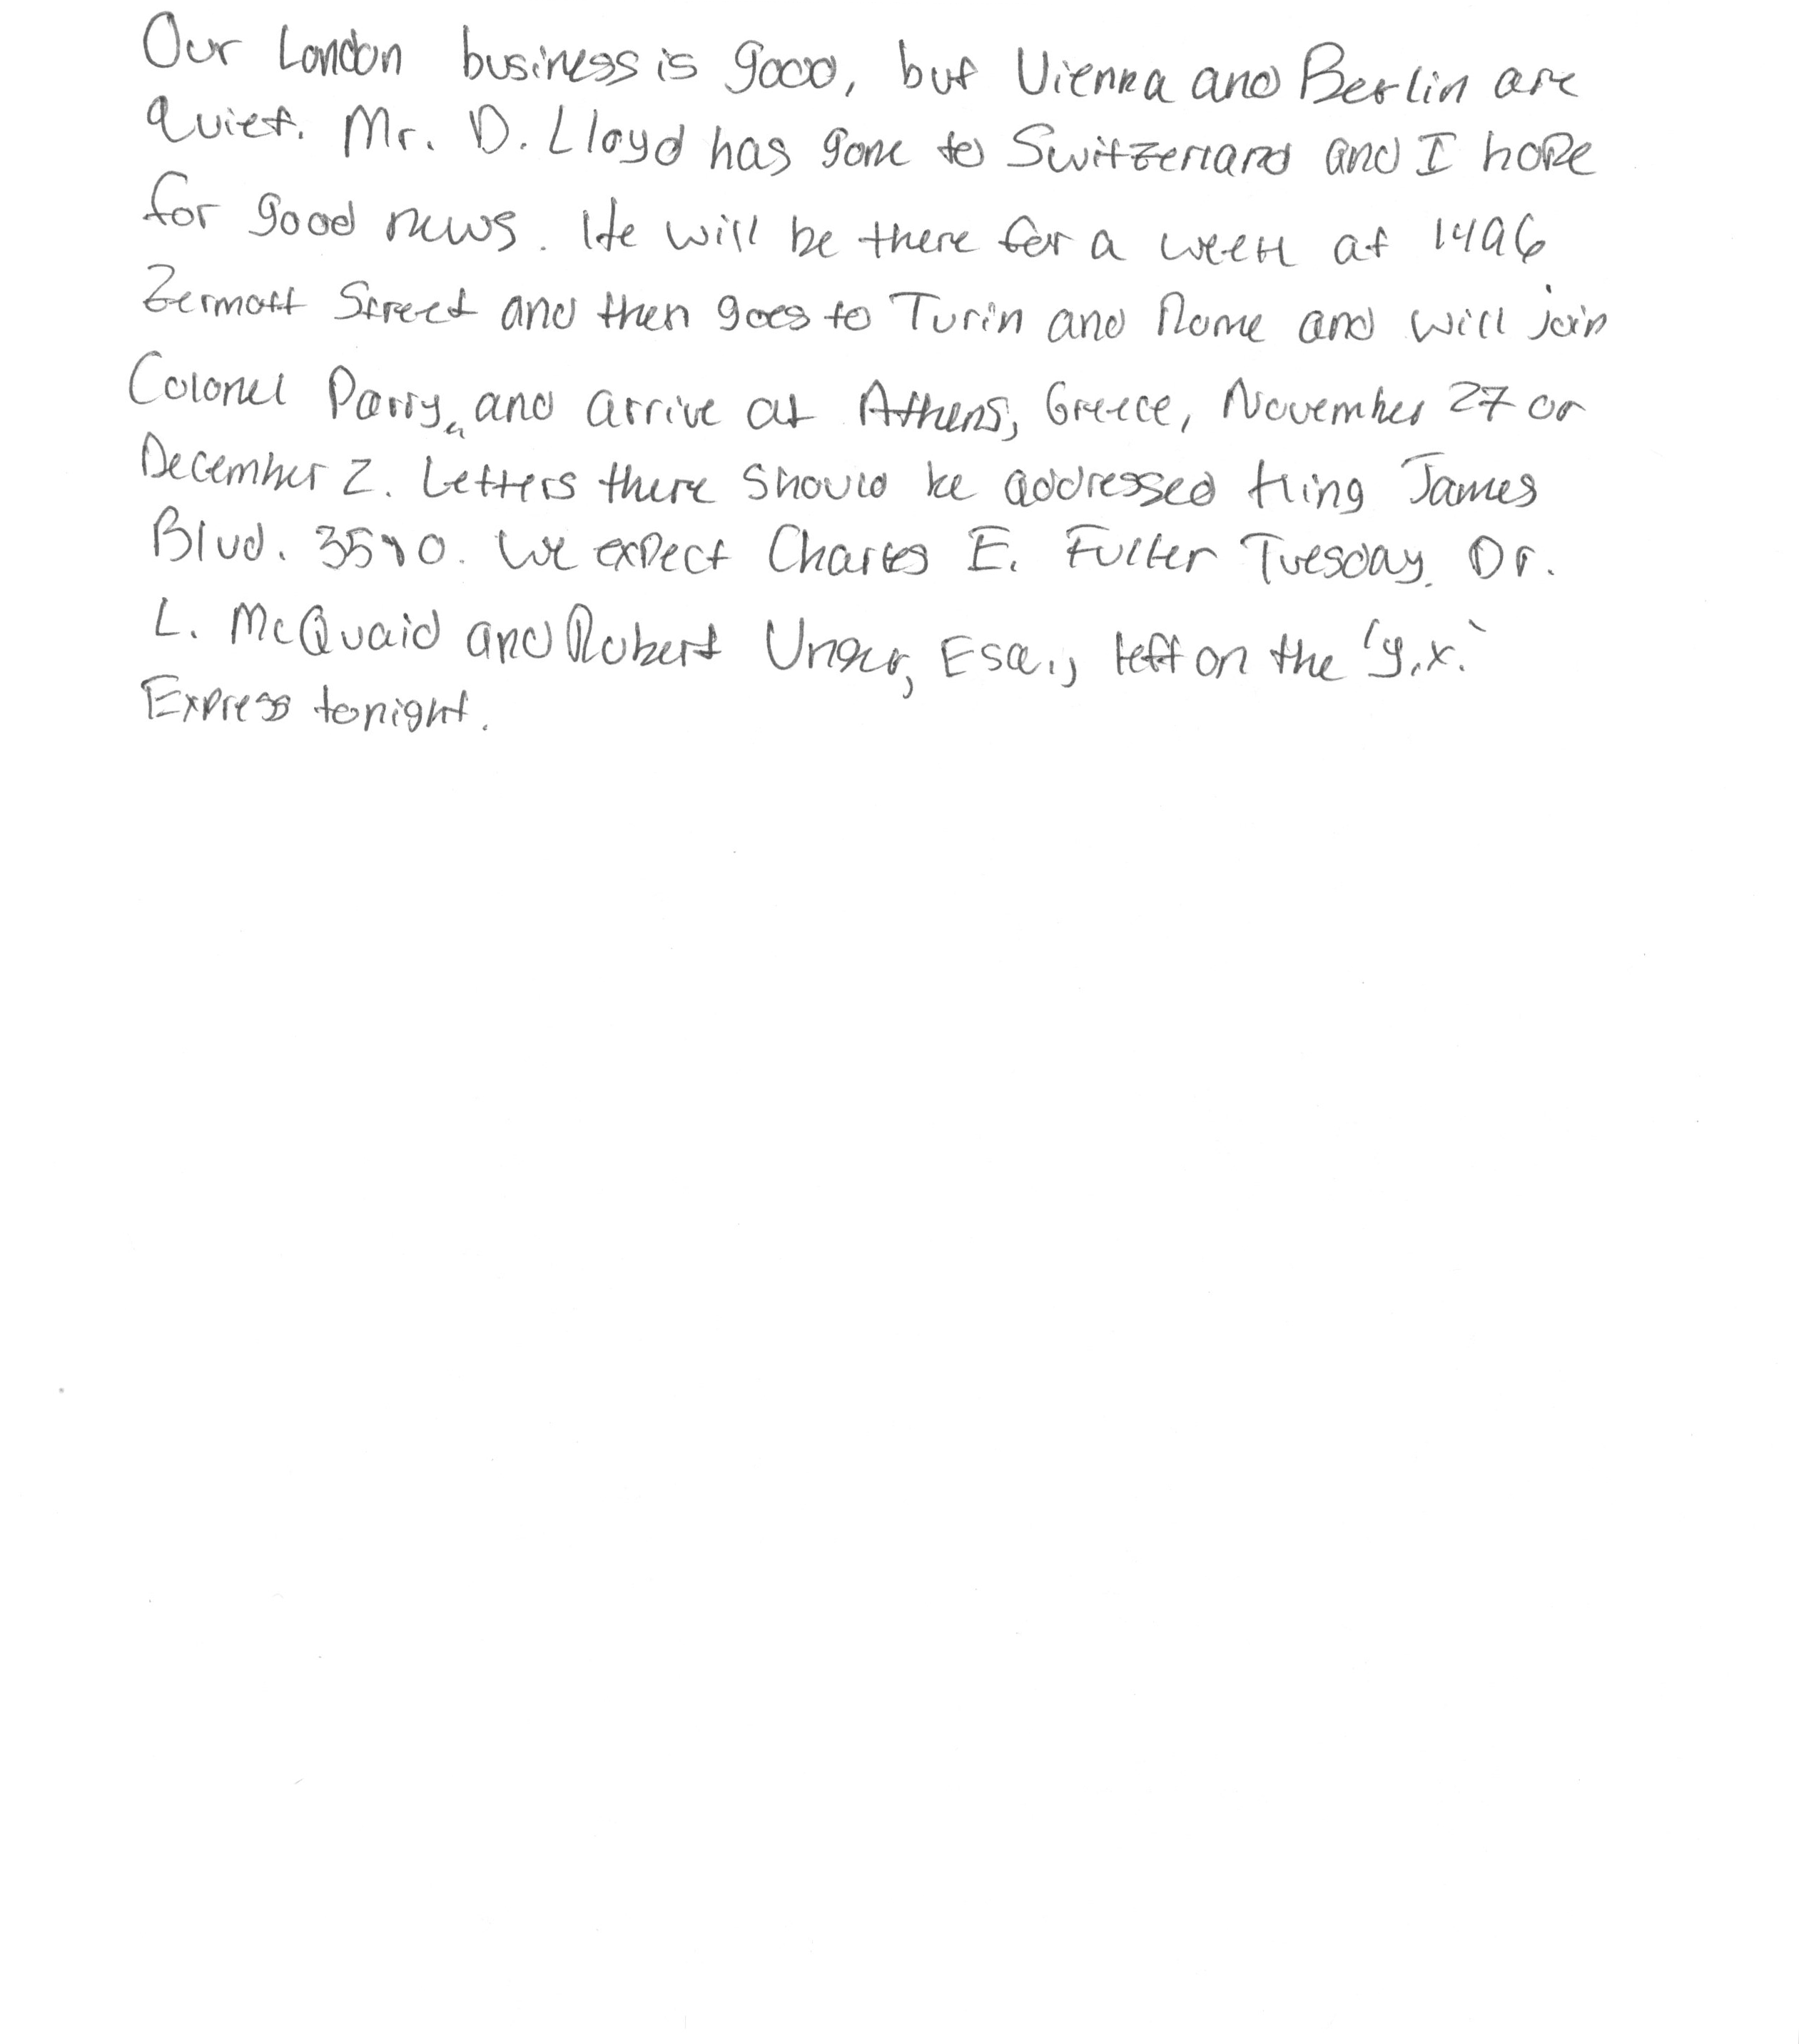 Our London business is good, but Vienna and Berlin are
quiet. Mr. D. Lloyd has gone to Switzerland and I hope
for good news. He will be there for a week at 1496
Zermott Street and then goes to Turin and Rome and will join
Colonel Parry, and arrive at Athens, Greece, November 27 or
December 2. Letters there should be addressed King James
Blvd. 3590. We expect Charles E. Fuller Tuesday. Dr.
L. McQuaid and Robert Unger, Esq., left on the 'y.x.'
Express tonight.